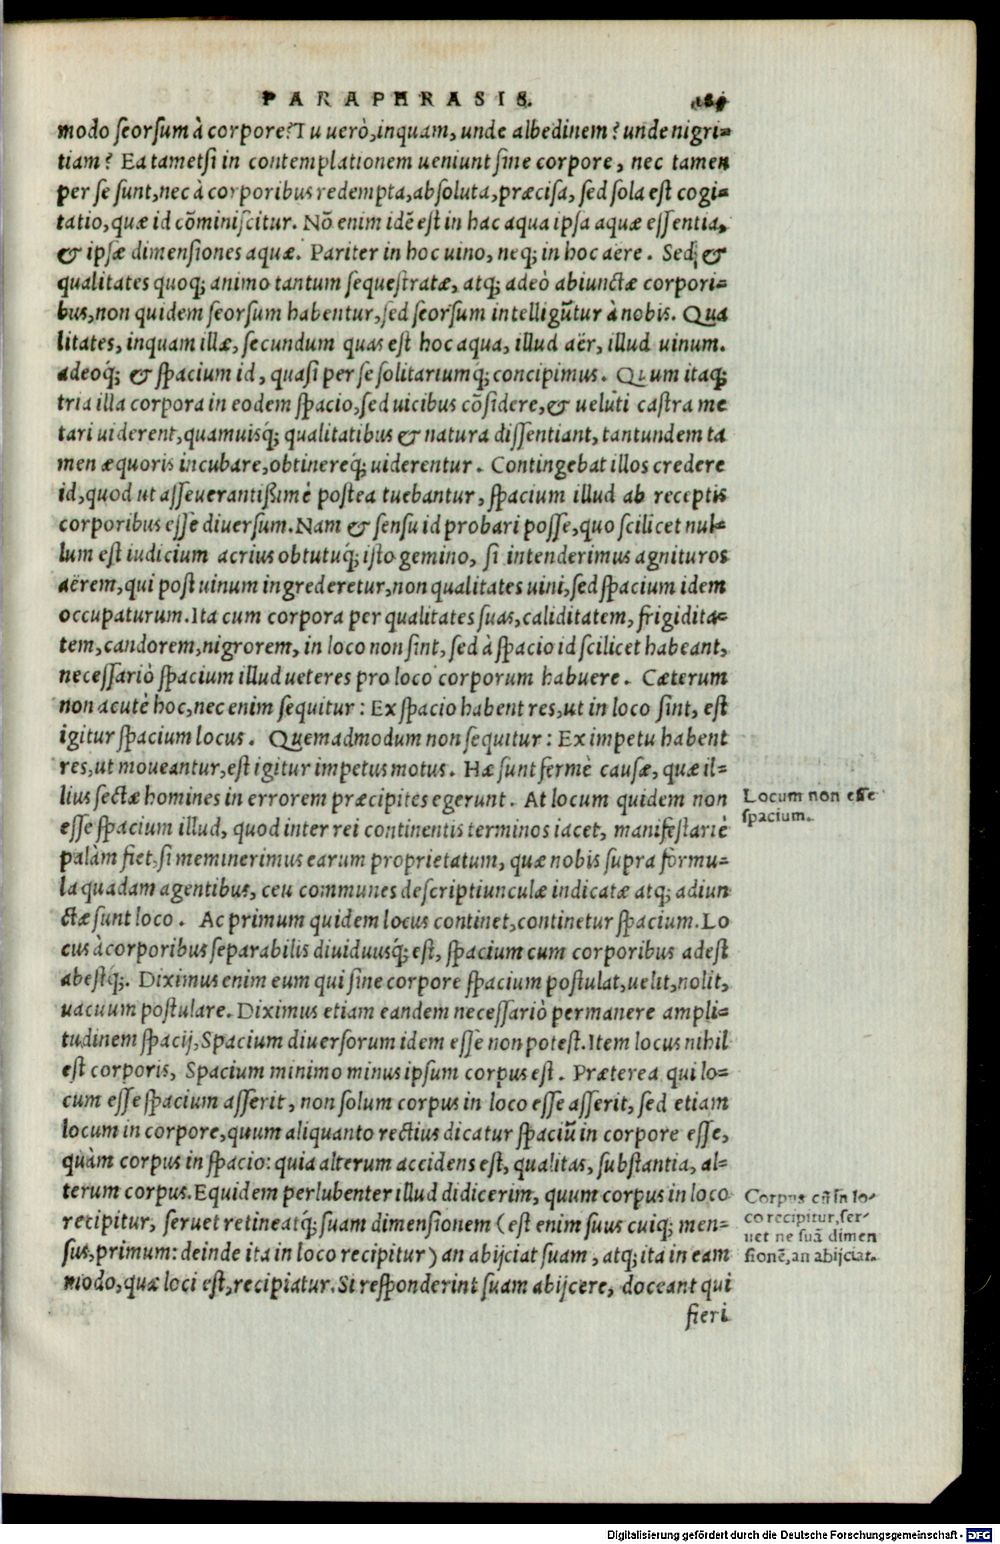 PARAPHRASIS.
modo seorsum à corpore? Tu uerò, inquam, unde albedinem? unde nigri=
tiam? Ea tametsi in contemplationem ueniunt sine corpore, nec tamen
per se sunt, nec à corporibus redempta, absoluta, præcisa, sed sola est cogi=
tatio, quæ id cõminiscitur. Nõ enim idẽ est in hac aqua ipsa aquæ essentia,
& ipsæ dimensiones aquæ. Pariter in hoc uino, neq; in hoc aere. Sed &
qualitates quoq; animo tantum sequestratæ, atq; adeò abiunctæ corpori=
bus, non quidem seorsum habentur, sed seorsum intelligũtur à nobis. Qua
litates, inquam illæ, secundum quas est hoc aqua, illud aër, illud uinum.
adeoq; & spacium id, quasi per se solitariumq́; concipimus. Qum itaq;
tria illa corpora in eodem spacio, sed uicibus cõsidere, & ueluti castra me
tari uiderent, quamuisq́; qualitatibus & natura dissentiant, tantundem ta
men æquoris incubare, obtinereq́; uiderentur. Contingebat illos credere
id, quod ut asseuerantißimè postea tuebantur, spacium illud ab receptis
corporibus esse diuersum. Nam & sensu id probari posse, quo scilicet nul=
lum est iudicium acrius obtutuq́; isto gemino, si intenderimus agnituros
aërem, qui post uinum ingrederetur, non qualitates uini, sed spacium idem
occupaturum. Ita cum corpora per qualitates suas, caliditatem, frigidita=
tem, candorem, nigrorem, in loco non sint, sed à spacio id scilicet habeant,
necessariò spacium illud ueteres pro loco corporum habuere. Cæterum
non acutè hoc, nec enim sequitur: Ex spacio habent res, ut in loco sint, est
igitur spacium locus. Quemadmodum non sequitur: Ex impetu habent
res, ut moueantur, est igitur impetus motus. Hæ sunt fermè causæ, quæ il=
lius sectæ homines in errorem præcipites egerunt. At locum quidem non
esse spacium illud, quod inter rei continentis terminos iacet, manifestariè
palàm fiet, si meminerimus earum proprietatum, quæ nobis supra formu=
la quadam agentibus, ceu communes descriptiunculæ indicatæ atq; adiun
ctæ sunt loco. Ac primum quidem locus continet, continetur spacium. Lo
cus à corporibus separabilis diuiduusq́; est, spacium cum corporibus adest
abestq́;. Diximus enim eum qui sine corpore spacium postulat, uelit, nolit,
uacuum postulare. Diximus etiam eandem necessariò permanere ampli=
tudinem spacij, Spacium diuersorum idem esse non potest. Item locus nihil
est corporis, Spacium minimo minus ipsum corpus est. Præterea qui lo=
cum esse spacium asserit, non solum corpus in loco esse asserit, sed etiam
locum in corpore, quum aliquanto rectius dicatur spaciũ in corpore esse,
quàm corpus in spacio: quia alterum accidens est, qualitas, substantia, al=
terum corpus. Equidem perlubenter illud didicerim, quum corpus in loco
recipitur, seruet retineatq́; suam dimensionem (est enim suus cuiq; men=
sus, primum: deinde ita in loco recipitur) an abijciat suam, atq; ita in eam
modo, quæ loci est, recipiatur. Si responderint suam abijcere, doceant qui
fieri
Locum non esse
spacium.
Corpus cũ in lo-
co recipitur, ser-
uet ne suã dimen
sionẽ, an abijciat.
Digitalisierung gefördert durch die Deutsche Forschungsgemeinschaft - DFG